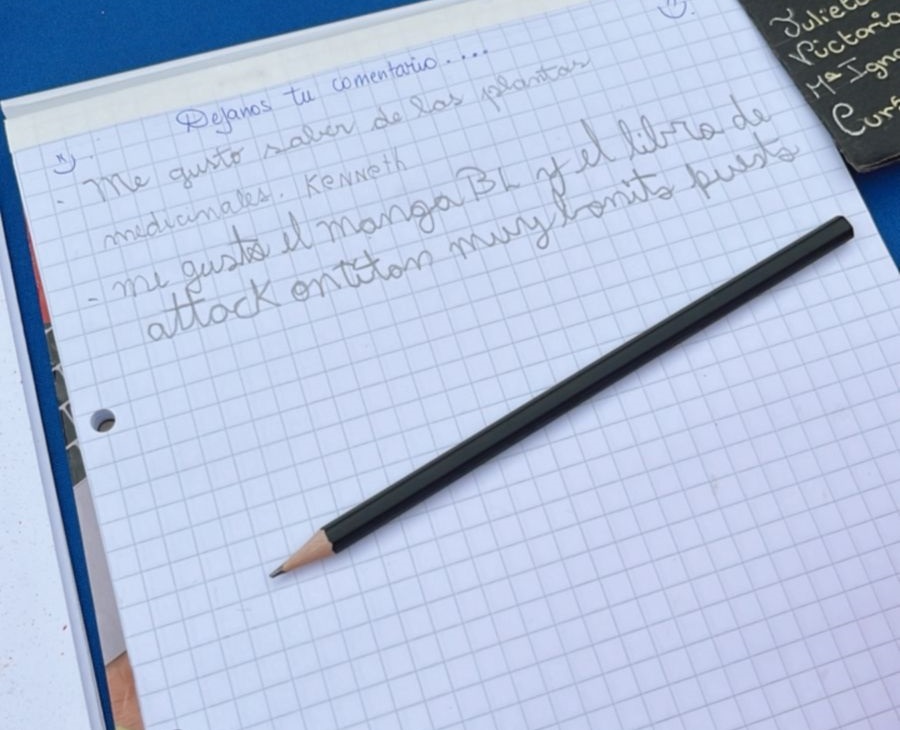 Dejanos tu comentario....
- Me gusto saber de las plantas
medicinales. Kenneth
- me gusta el manga BL y el libro de
attack ontitan muy bonito puesto
Juliet
Victoria
Mª Igna
Curs